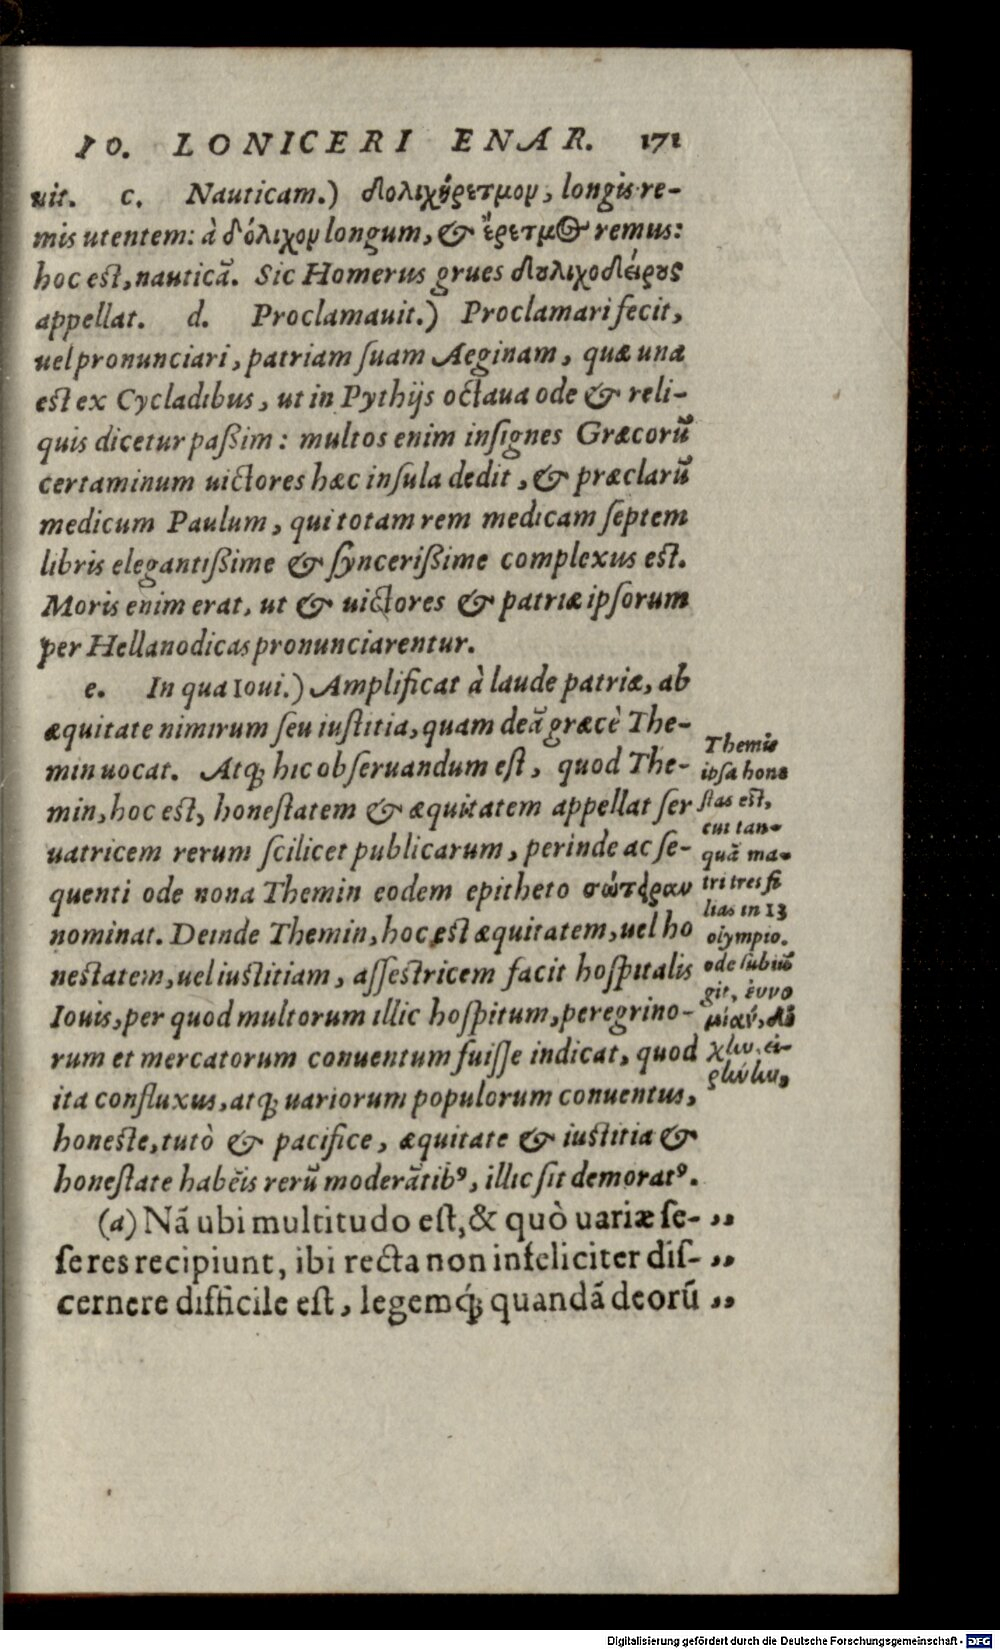 IO. LONICERI ENAR. 171
uit. c. Nauticam.) δολιχήρετμον, longis re-
mis utentem: à δόλιχον longum, & ἔρετμος remus:
hoc est, nauticã. Sic Homerus grues δουλιχοδείρους
appellat. d. Proclamauit.) Proclamari fecit,
uel pronunciari, patriam suam Aeginam, quæ una
est ex Cycladibus, ut in Pythijs octaua ode & reli-
quis dicetur paßim: multos enim insignes Græcorũ
certaminum uictores hæc insula dedit, & præclarũ
medicum Paulum, qui totam rem medicam septem
libris elegantißime & syncerißime complexus est.
Moris enim erat, ut & uictores & patriæ ipsorum
per Hellanodicas pronunciarentur.
e. In qua Ioui.) Amplificat à laude patriæ, ab
æquitate nimirum seu iustitia, quam deã græcè The-
min uocat. Atq; hic obseruandum est, quod The-
min, hoc est, honestatem & æquitatem appellat ser
uatricem rerum scilicet publicarum, perinde ac se-
quenti ode nona Themin eodem epitheto σώτειραν
nominat. Deinde Themin, hoc est æquitatem, uel ho
nestatem, uel iustitiam, assestricem facit hospitalis
Iouis, per quod multorum illic hospitum, peregrino-
rum et mercatorum conuentum fuisse indicat, quod
ita confluxus, atq; uariorum populorum conuentus,
honeste, tutò & pacifice, æquitate & iustitia &
honestate habẽis rerũ moderãtibꝰ, illic sit demoratꝰ.
(a) Nã ubi multitudo est, & quò uariæ se- ,,
se res recipiunt, ibi recta non infeliciter dis- ,,
cernere difficile est, legemq́; quandã deorũ ,,
Themis
ipsa hone
stas est,
cui tan-
quã ma-
tri tres fi
lias in 13
olympio.
ode subiũ
git, ἐυνο
μίαν, δί
χην, εἰ-
ρήνην,
Digitalisierung gefördert durch die Deutsche Forschungsgemeinschaft - DFG